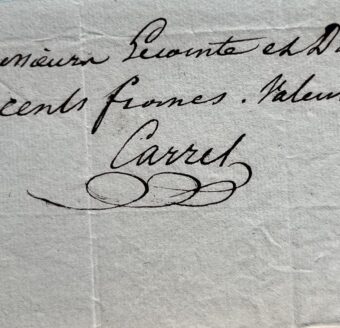 ssieurs Lecointe et D
cents francs. Valeu
Carret